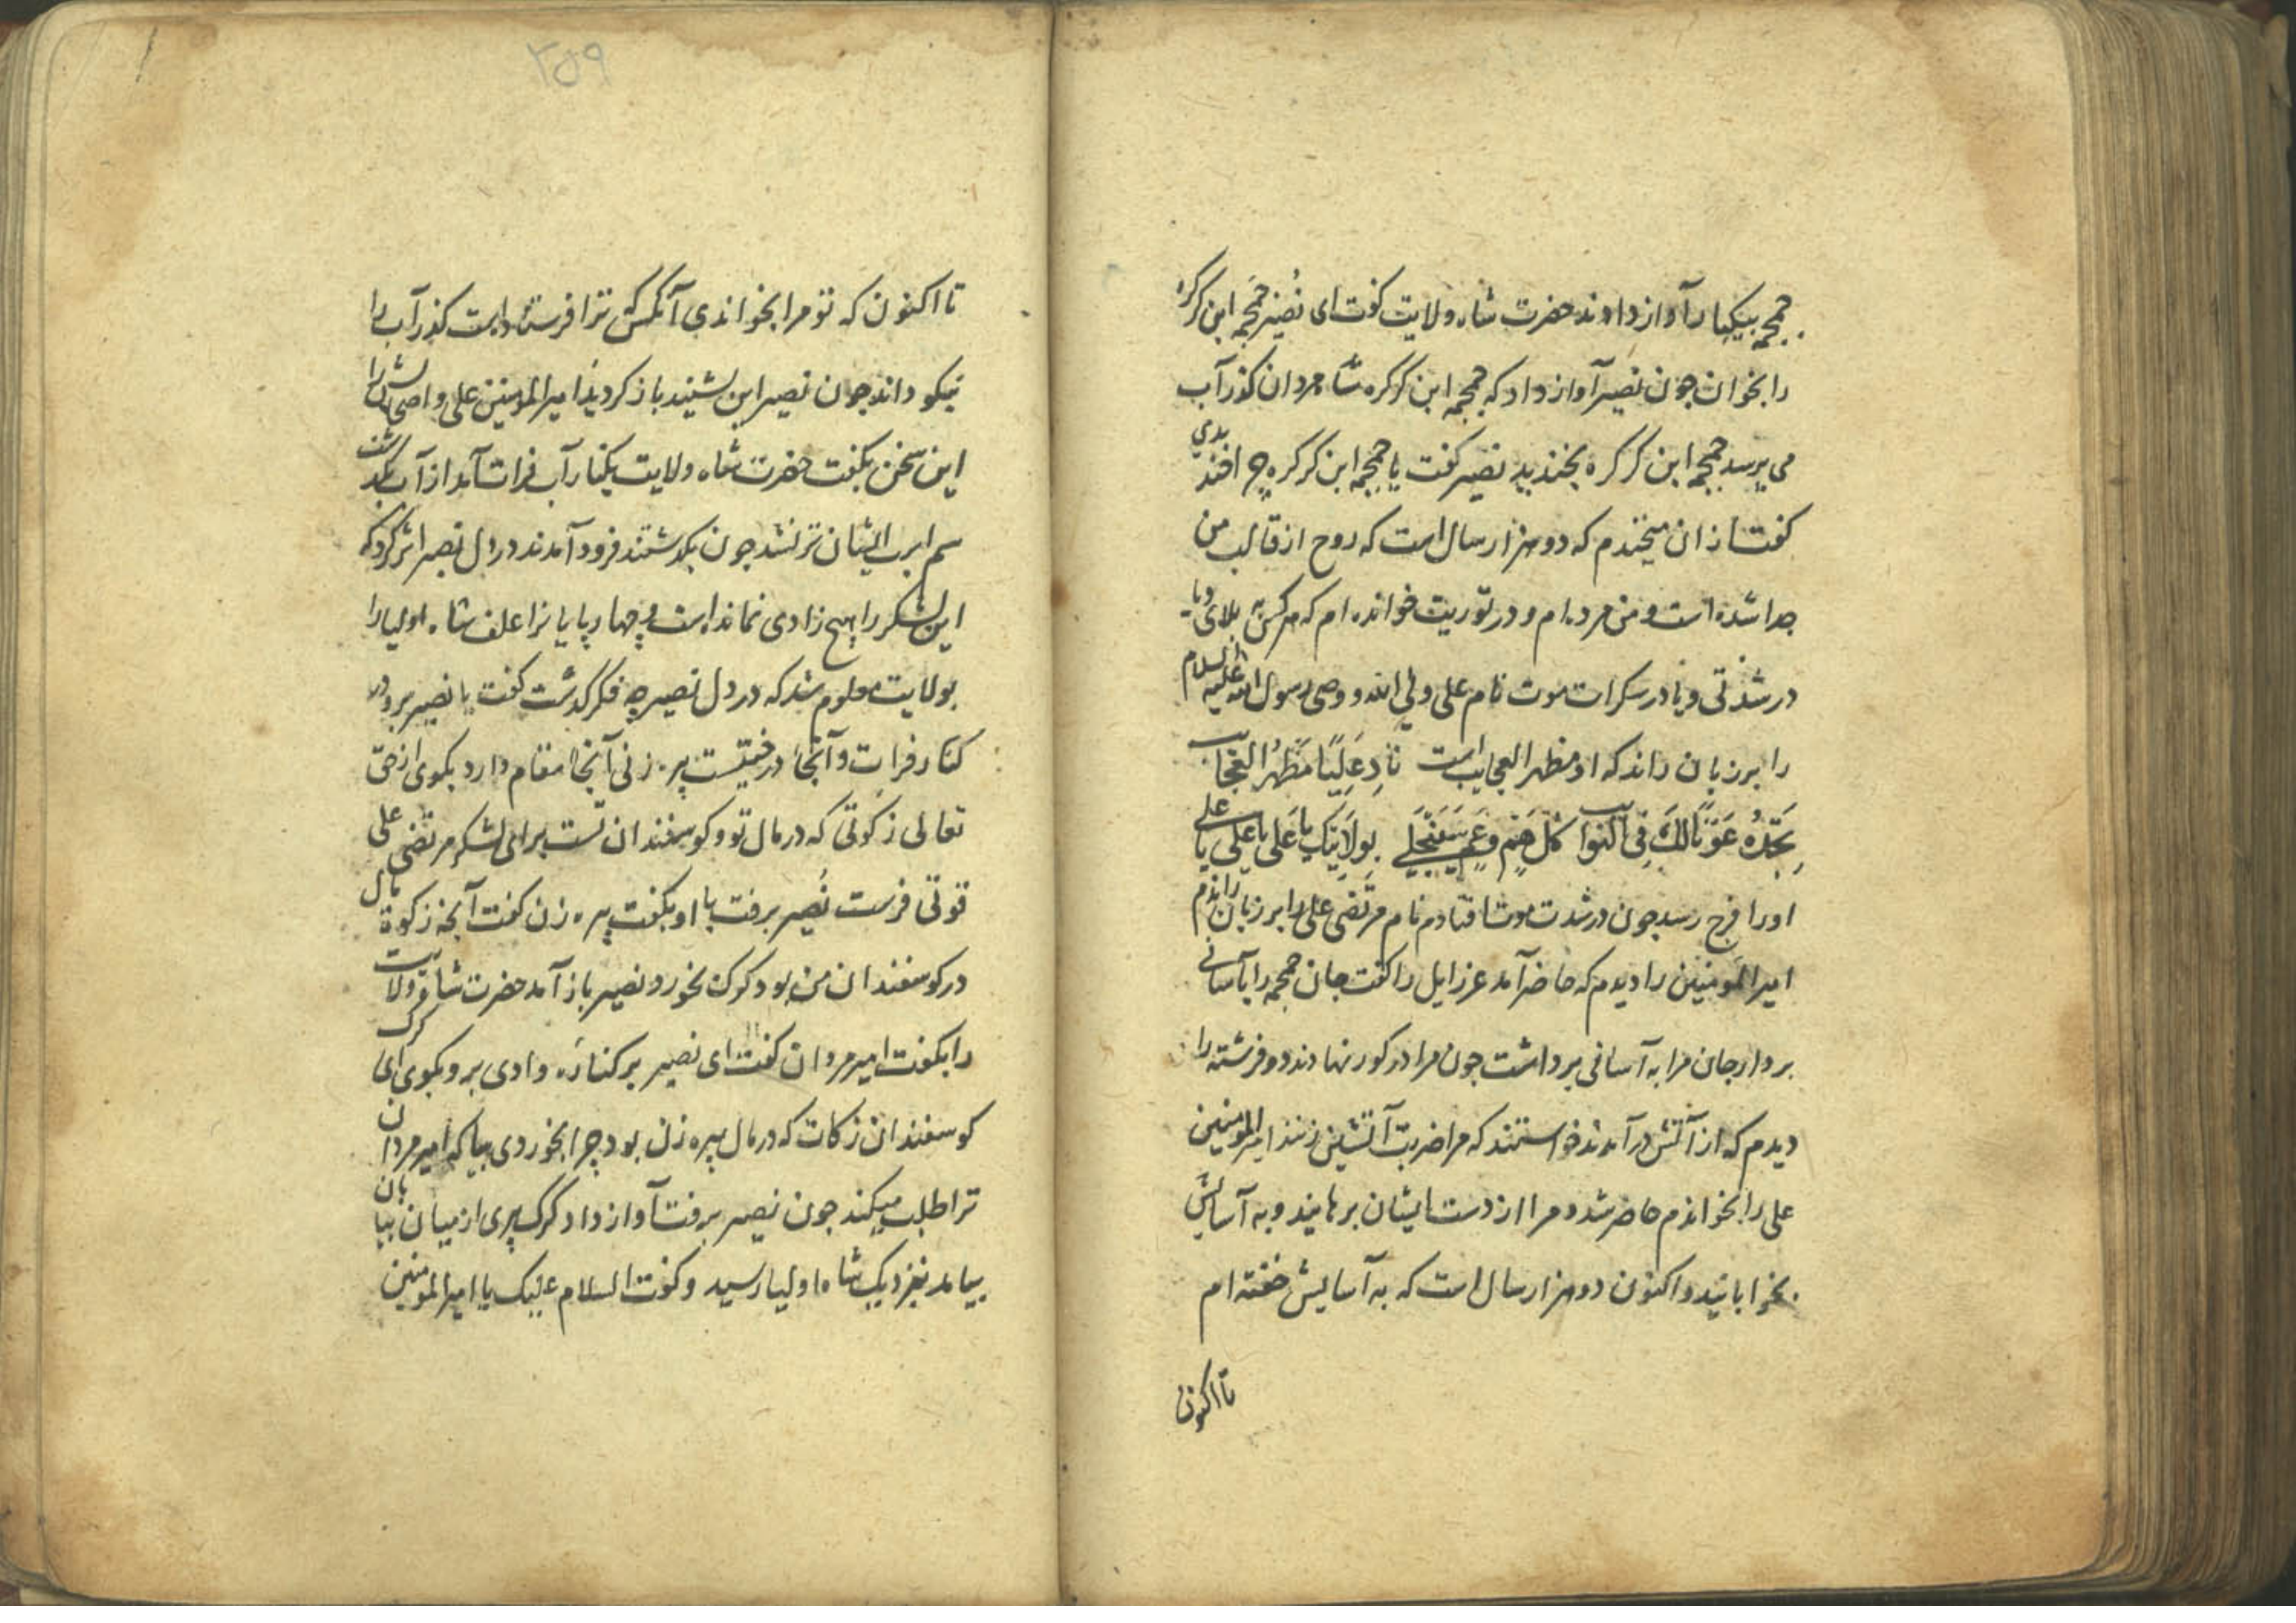 جمجمه بیکبار آواز دادند حضرت شاه ولایت کفت ای نُصَیر جمجمه ابن کرکره
را بخوان جون نصیر آواز داد که جمجمه ابن کرکره شاه مردان کذر آب
می پرسد جمجمه ابن کرکره بخندید نصیر کفت یا جمجمه ابن کرکره چه افتد بدی
کفت از ان میخندم که دو هزار سال است که روح از قالب من
جدا شده است و من مرده ام و در توریت خوانده ام که هر کس به بلای و یا
در شدتی و یا در سکرات موت نام علی ولی الله و وصی رسول الله علیه السلام
را بر زبان راند که او مظهر العجایب است نَادِ عَلِیًّا مَظْهَرُ العَجَایب
تَجِدْهُ عَوْنًا لَكَ فِی النوایب كُلّ هَمّ وَ غَم سَیَنْجَلِی بِوِلَایَتِكَ یا عَلی یا عَلی یا علی
اورا فرج رسد جون در شدت موت افتادم نام مرتضی علی را بر زبان راندم
امیر المومنین را دیدم که حاضر آمد عزرایل را کفت جان جمجمه را بآسانی
بردار جان مرا به آسانی برداشت جون مرا در کور نهادند دو فرشته را
دیدم که از آتش در آمدند خواستند که مرا ضربت آتشین زنند امیر المومنین
علی را بخواندم حاضر شد و مرا از دست ایشان برهانید و به آسایش
بخوابانید و اکنون دو هزار سال است که به آسایش خفته ام
تا اکنون
۲۵۹
تا اکنون که تو مرا بخواندی آنکس که ترا فرستاده است کذر آب را
نیکو داند جون نصیر این بشنید باز کردید امیر المومنین علی و اصحابش را
این سخن بکفت حضرت شاه ولایت بکنار آب فرات آمد از آب بکذشت
سم اسب ایشان تر نشد جون بکذشتند فرود آمدند در دل نصیر اثر کرد که
این لشکر را هیچ زادی نمانده است و چهارپایانرا علف شاه اولیا را
بولایت معلوم شد که در دل نصیر چه فکر کذشت کفت یا نصیر برو در
کنار فرات و آنجا درختیست پیره زنی آنجا مقام دارد بکوی از حق
تعالی زکوتی که در مال تو و کوسفندان تست برای لشکر مرتضی علی
قوتی فرست نُصیر برفت با او بکفت پیره زن کفت آنچه زکوة مال
در کوسفندان من بود کرک بخورد نصیر باز آمد حضرت شاه ولایت
را بکفت امیر مردان کفت ای نصیر بر کناره وادی برو بکوی ای کرک
کوسفندان زکات که در مال پیره زن بود چرا بخوردی بیا که امیر مردان
ترا طلب میکند جون نصیر برفت آواز داد کرک پیری از میان بیابان
بیامد بنزدیک شاه اولیا رسید و کفت السلام علیک یا امیر المومنین